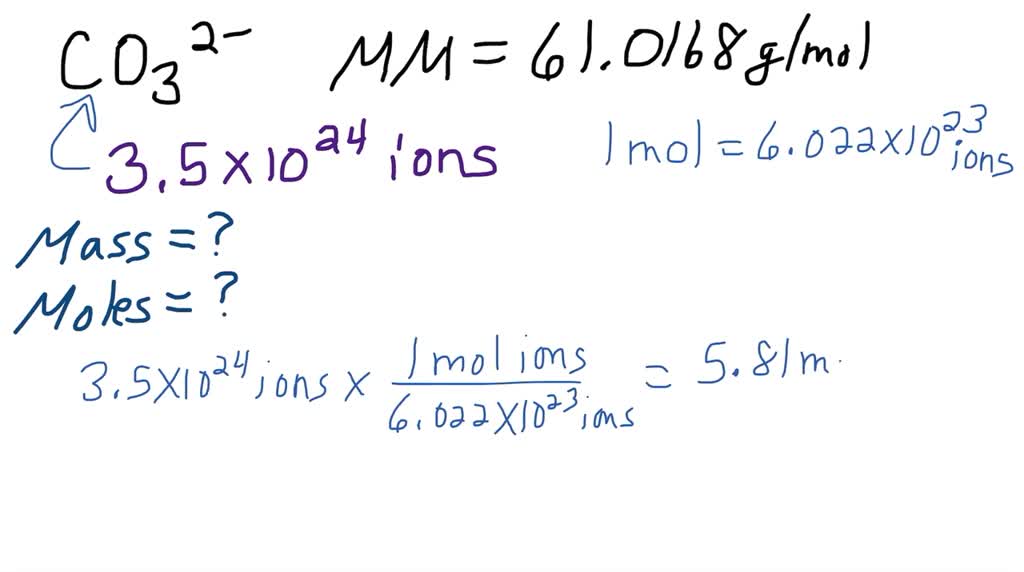 CO₃²⁻ MM = 61.0168 g/mol
3.5 x 10²⁴ ions 1 mol = 6.022 x 10²³ ions
Mass = ?
Moles = ?
3.5 x 10²⁴ ions x 1 mol ions / 6.022 x 10²³ ions = 5.81 m